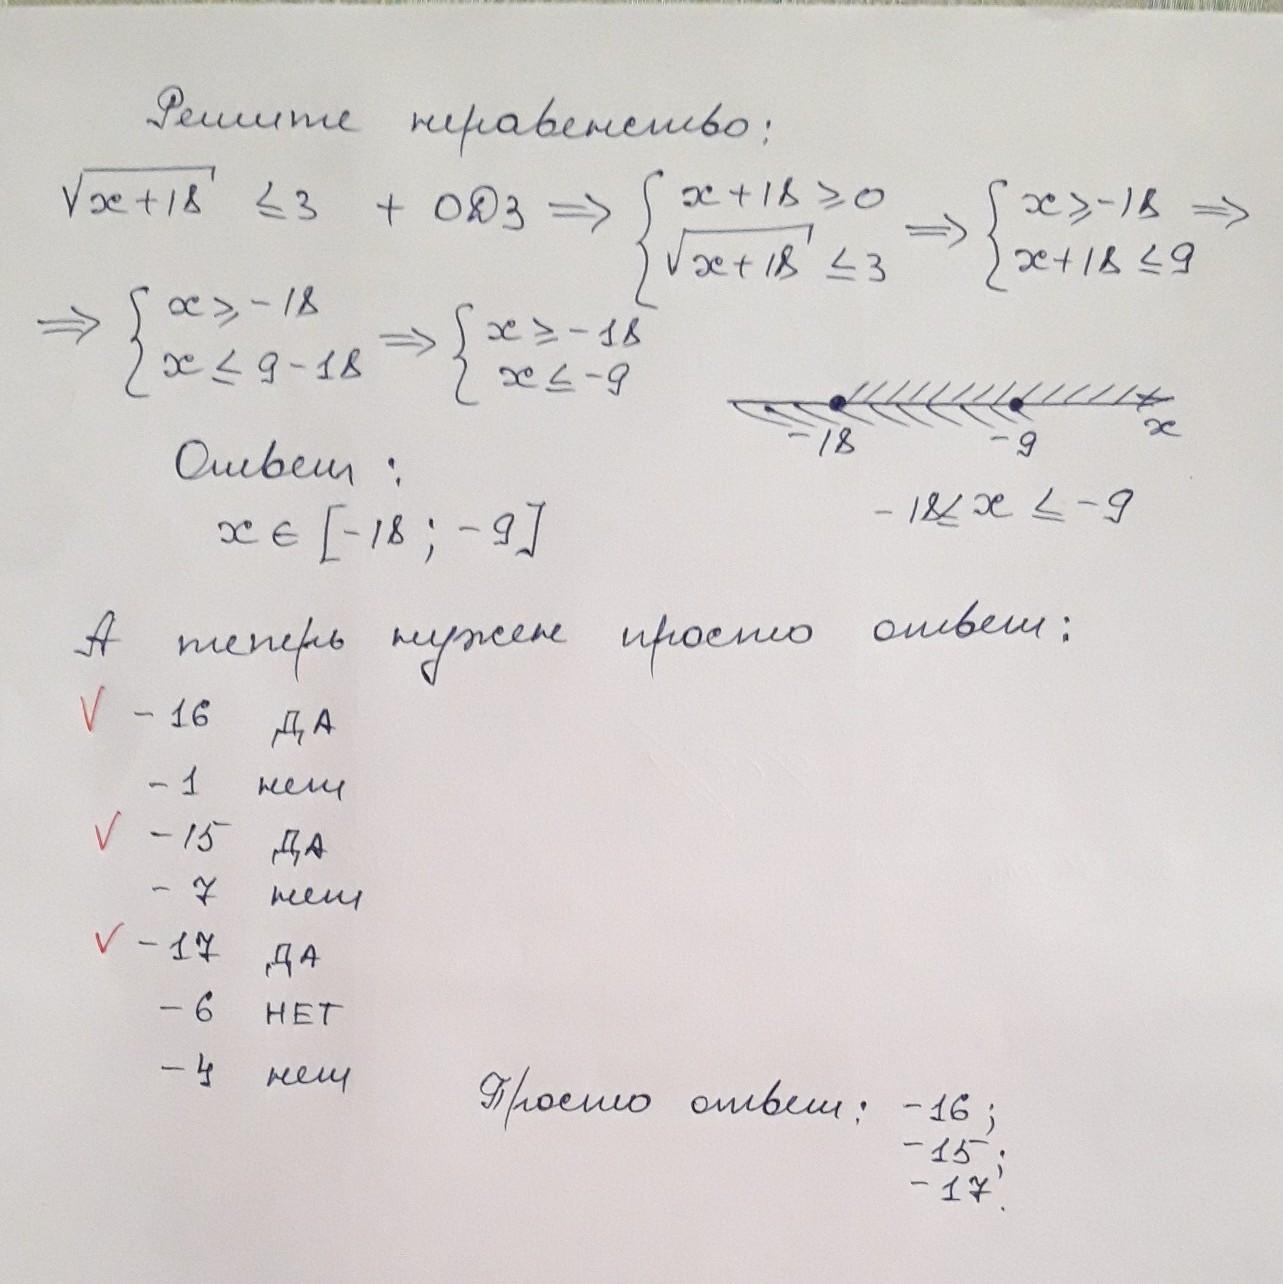 Решите неравенство:
√(x+18) ≤ 3 + ОДЗ ⇒ { x+18 ≥ 0 ⇒ { x ≥ -18 ⇒
√(x+18) ≤ 3 x+18 ≤ 9
⇒ { x ≥ -18 ⇒ { x ≥ -18
x ≤ 9-18 x ≤ -9
-18 -9 x
Ответ:
-18 ≤ x ≤ -9
x ∈ [-18; -9]
А теперь нужен просто ответ:
√ -16 ДА
-1 нет
√ -15 ДА
-7 нет
√ -17 ДА
-6 НЕТ
-4 нет
Просто ответ: -16;
-15;
-17.